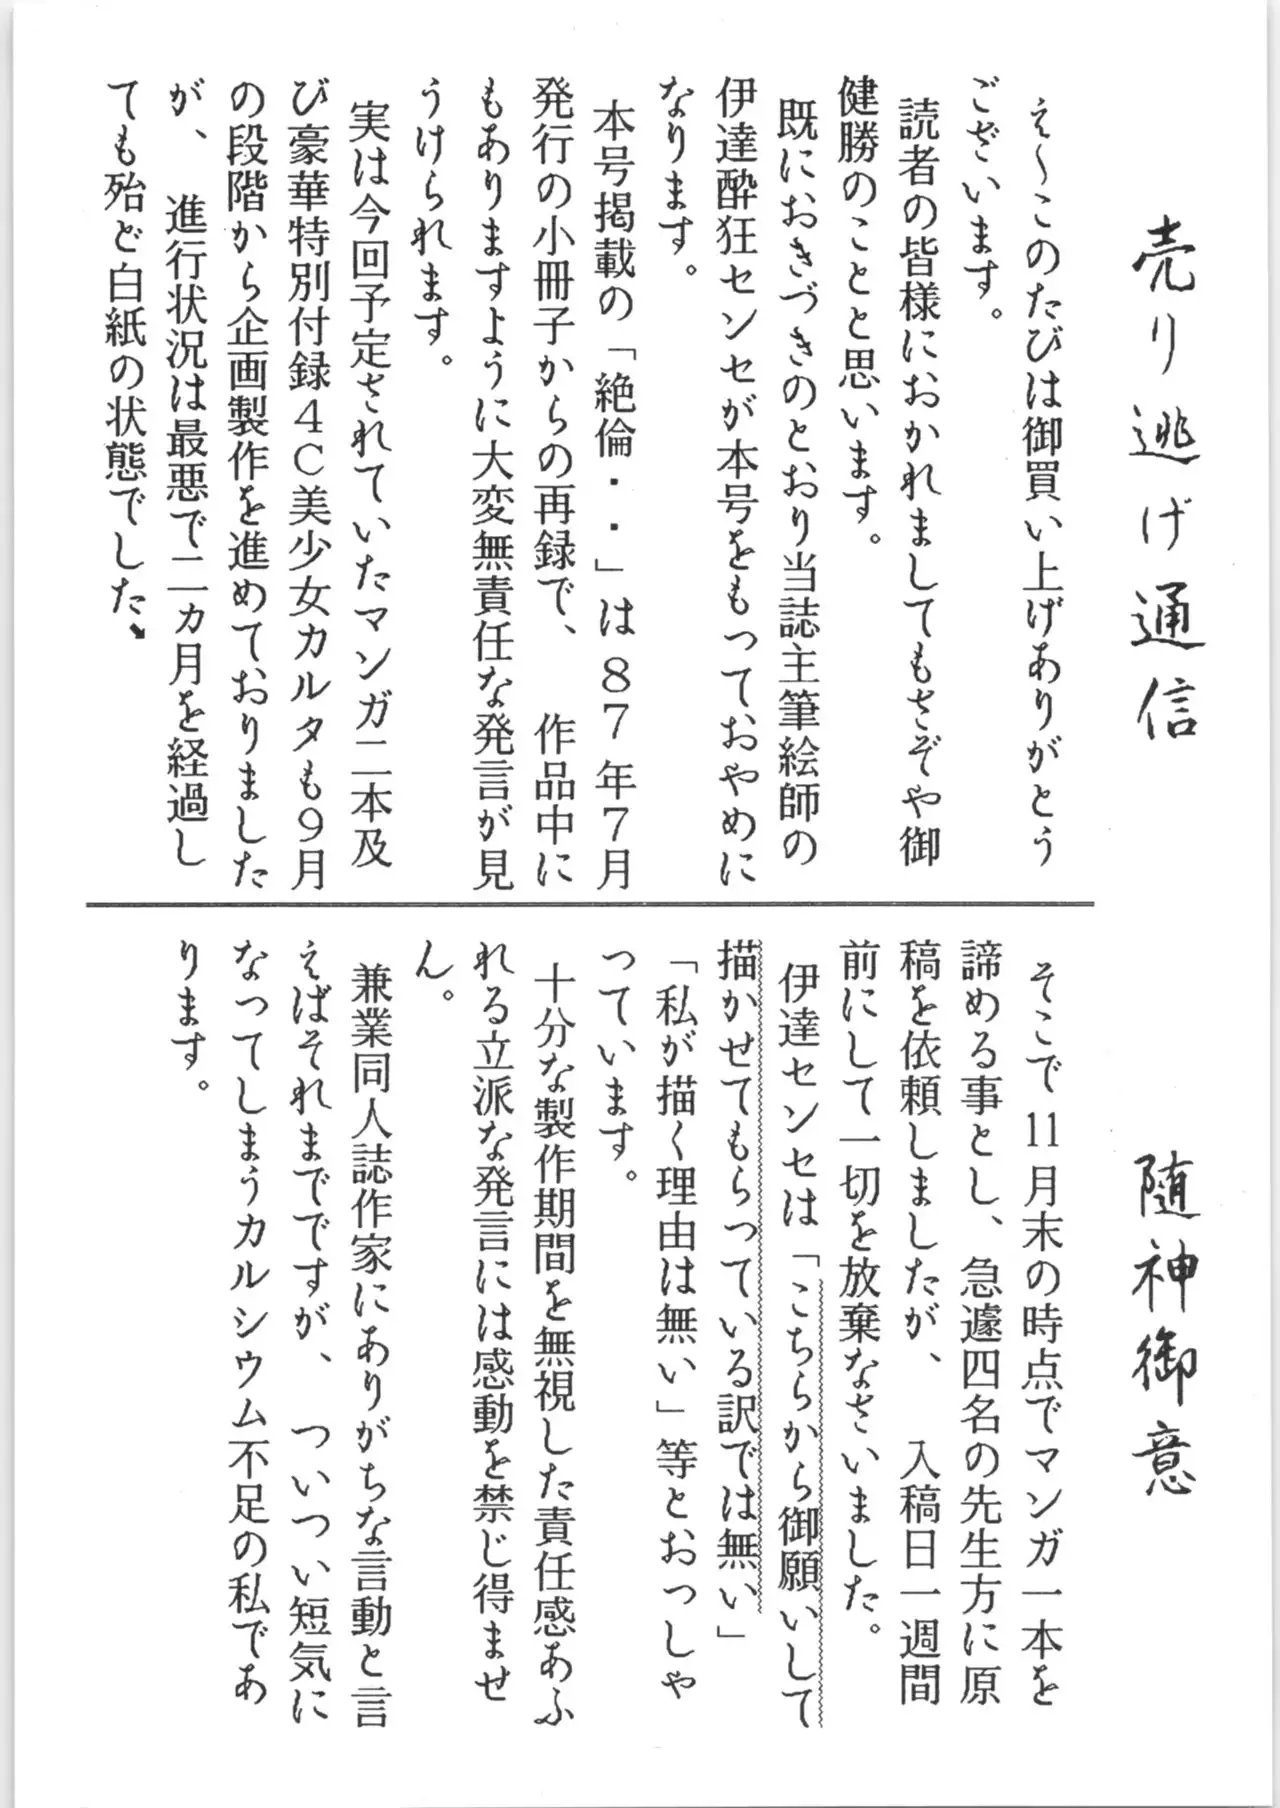 売り逃げ通信
随神御意
え～このたびは御買い上げありがとう
ございます。
読者の皆様におかれましてもさぞや御
健勝のことと思います。
既におきづきのとおり当誌主筆絵師の
伊達酔狂センセが本号をもっておやめに
なります。
本号掲載の「絶倫・・」は８７年７月
発行の小冊子からの再録で、作品中に
もありますように大変無責任な発言が見
うけられます。
実は今回予定されていたマンガ二本及
び豪華特別付録４Ｃ美少女カルタも９月
の段階から企画製作を進めておりました
が、進行状況は最悪で二ヵ月を経過し
ても殆ど白紙の状態でした➘
そこで11月末の時点でマンガ一本を
諦める事とし、急遽四名の先生方に原
稿を依頼しましたが、入稿日一週間
前にして一切を放棄なさいました。
伊達センセは「こちらから御願いして
描かせてもらっている訳では無い」
「私が描く理由は無い」等とおっしゃ
っています。
十分な製作期間を無視した責任感あふ
れる立派な発言には感動を禁じ得ませ
ん。
兼業同人誌作家にありがちな言動と言
えばそれまでですが、ついつい短気に
なってしまうカルシウム不足の私であ
ります。